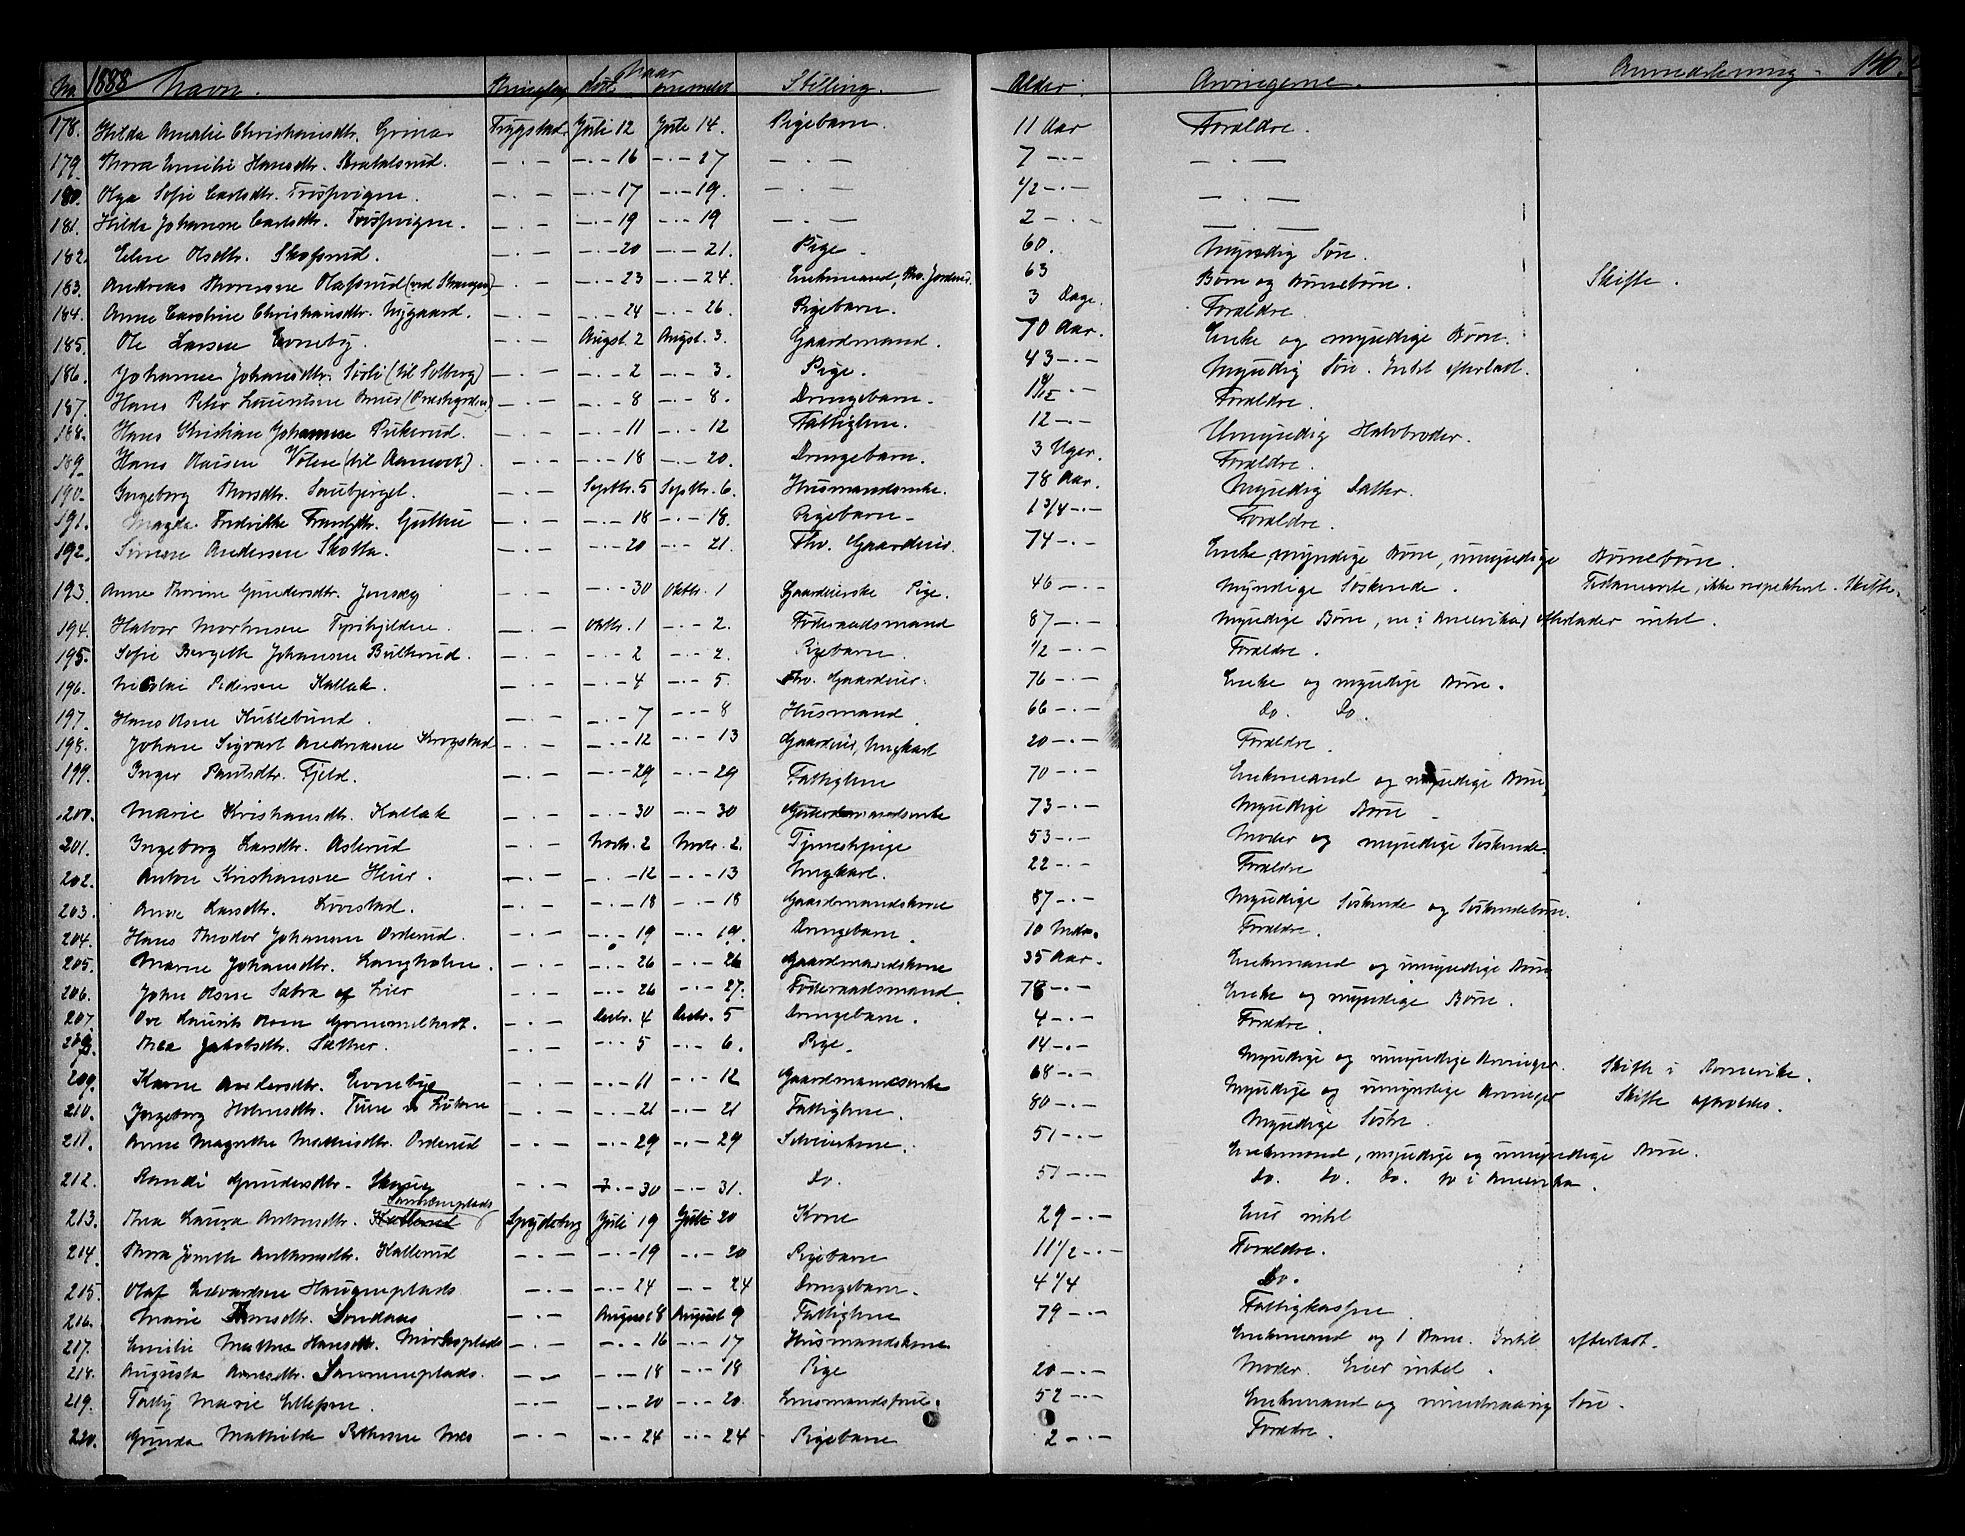 No. 1888 Navn. Thinglag Naar død. anmeldt Stilling. Alder. Arvingerne. Anmærkning.
178. Hilda Amalie Christiansdtr. Grina Trygstad Juli 12 Juli 14. Pigebarn. 11 Aar Forældre.
179. Thora Emilie Hansdtr. — . — — . — 16 — . — 27 — . — 7 — . — — . —
180. Olga Sofie Carlsdtr. — . — — . — 17 — . — 19. — . — 1/2 — . — — . —
181. Hilda Johanne Carlsdtr. — . — — . — 19 — . — 19 — . — 2 — . — — . —
182. Eline Olsdtr. Skofsrud. — . — — . — 20 — . — 21. Pige. 60. Myndig Søn.
183. Andreas Thoresen Olafsrud (ved Skrangen) — . — — . — 23 — . — 24. Enkemand, 63 Børn og Børnebørn. Skifte.
184. Anne Caroline Christiansdtr. Nygaard. — . — — . — 24 — . — 26. Pigebarn. 3 Dage. Forældre.
185. Ole Larsen Evneby. — . — Augst. 2 Augst. 3. Gaardmand. 70 Aar. Enke og myndige Børn.
186. Johanne Johansdtr. Sørli (til Solberg) — . — — . — 2 — . — 3. Pige. 43 — . — Myndig Søn. Intet efterladt.
187. Hans Peter Lauentsen (Præstegården) — . — — . — 8 — . — 8. Drengebarn. Forældre.
188. Hans Kristian Johannesen Pukerud. — . — — . — 11 — . — 12 Fattiglem. 12 — . — Umyndig Halvbroder.
189. Hans Olaisen — . — — . — 18 — . — 20. Drengebarn. 3 Uger. Forældre.
190. Ingeborg Thorsdtr. Saubjerget. — . — Septbr. 5 Septbr. 6. Husmandsenke. 78 Aar. Myndig Datter.
191. Magda Fredrikke Guthu — . — — . — 18 — . — 18. Pigebarn. 1 3/4 — . — Forældre.
192. Simen Andersen Skotta. — . — — . — 20 — . — 21. Fhv. Gaardeier. 74 — . — Enke, myndige Børn, umyndige Børnebørn.
193. Anne Thorine Gundersdtr. Jonsrey — . — — . — 30 Oktbr. 1 Gaardeierske Pige. 46 — . — Myndige Søskende. Testamente, ikke respekteret. Skifte.
194. Halvor Mortensen — . — Oktbr. 1 — . — 2. Føderaadsmand 87 — . — Myndige Børn, en i Amerika, efterlader intet.
195. Sofie Bergethe Johansen Bulkrud. — . — — . — 2 — . — 2. Pigebarn. 1/2 — . — Forældre.
196. Nicolai Pedersen Kallak. — . — — . — 4 — . — 5. Fhv. Gaardeier. 76 — . — Enke og myndige Børn.
197. Hans Olsen Kullebund. — . — — . — 7 — . — 8 Husmand. 66 — . — Do. Do.
198. Johan Sigvart Andreasen Krogstad — . — — . — 12 — . — 13 Gaardeier, Ungkarl 20 — . — Forældre.
199. Inger Paulsdtr. Fjeld. — . — — . — 29 — . — 29 Fattiglem 70 — . — Enkemand og myndige Børn
200. Marie Kristiansdtr. Kallak — . — — . — 30 — . — 30 73 — . — Myndige Børn
201. Ingeborg Larsdtr. Aslerud — . — Novbr. 2 Novbr. 2. Tjenestepige 53 — . — Moder og myndige Søskende.
202. Anton Kristiansen Hiier. — . — — . — 12 — . — 13 Ungkarl. 22 — . — Forældre
203. Anne Larsdtr. Lørestad. — . — — . — 18 — . — 18 Gaardmandskone 87 — . — Myndige Søskende og Søskendebørn.
204. Hans Theodor Johansen Orderud. — . — — . — 19 — . — 19. Drengebarn. 10 Mdr. Forældre.
205. Maren Johansdtr. Langholen. — . — — . — 26 — . — 26 Gaardmandskone 35 Aar. Enkemand og umyndige Børn
206. John Olsen Sætra af Lier — . — — . — 26 — . — 27. Føderaadsmand 78 — . — Enke og myndige Børn.
207. Ove Laurits Olsen Gammelkart. — . — Decbr. 4 Decbr. 5 Drengebarn. 4 — . — Forældre.
208. Thea Jakobsdtr. Sæther. — . — — . — 5 — . — 6. Pige. 14 — . — Myndige og umyndige Arvinger. Skifte i Amerika.
209. Karen Andersdtr. Evnebye — . — — . — 11 — . — 12 Gaardmandsenke 68 — . — Myndige og umyndige Arvinger Skifte afholdes.
210. Ingeborg Holmsdtr. — . — — . — 21 — . — 21 Fattiglem. 80 — . — Myndige Søstre.
211. Anne Magrethe Mathisdtr. Orderud — . — — . — 29 — . — 29 Selveierkone. 51 — . — Enkemand, myndige og umyndige Børn.
212. Randi Gundersdtr. — . — — . — 30 — . — 31. Do. 51 — . — Do. Do. Do. to i Amerika.
213. Thea Laura Antonsdtr. Spydeberg Juli 19 Juli 20 Kone 29 — . — Eier intet
214. Thora Antonsdtr. Kallerud — . — — . — 19 — . — 20 Pigebarn 11 1/2 — . — Forældre.
215. Olaf Edvardsen Haugeneplads — . — — . — 24 — . — 24 Drengebarn. 4 1/4 Do.
216. Marie Sondaas — . — August 8 August 9 Fattiglem 79 — . — Fattigkassen
217. Emilie Mathea Hansdtr. — . — — . — 16 — . — 17 Husmandskone. Enkemand og 1 Barn. Intet efterladt.
218. Augusta Arnesdtr. — . — — . — 18 — . — 18 Pige 20 — . — Moder. Eier intet.
219. Marie Ellefsen. — . — — . — 20 — . — 20. Lensmandsfrue. 52 — . — Enkemand og mindreaarig Søn.
220. Gunda Mathilde Pettersen Næs — . — — . — 24 — . — 24 Pigebarn 2 — . — Forældre.